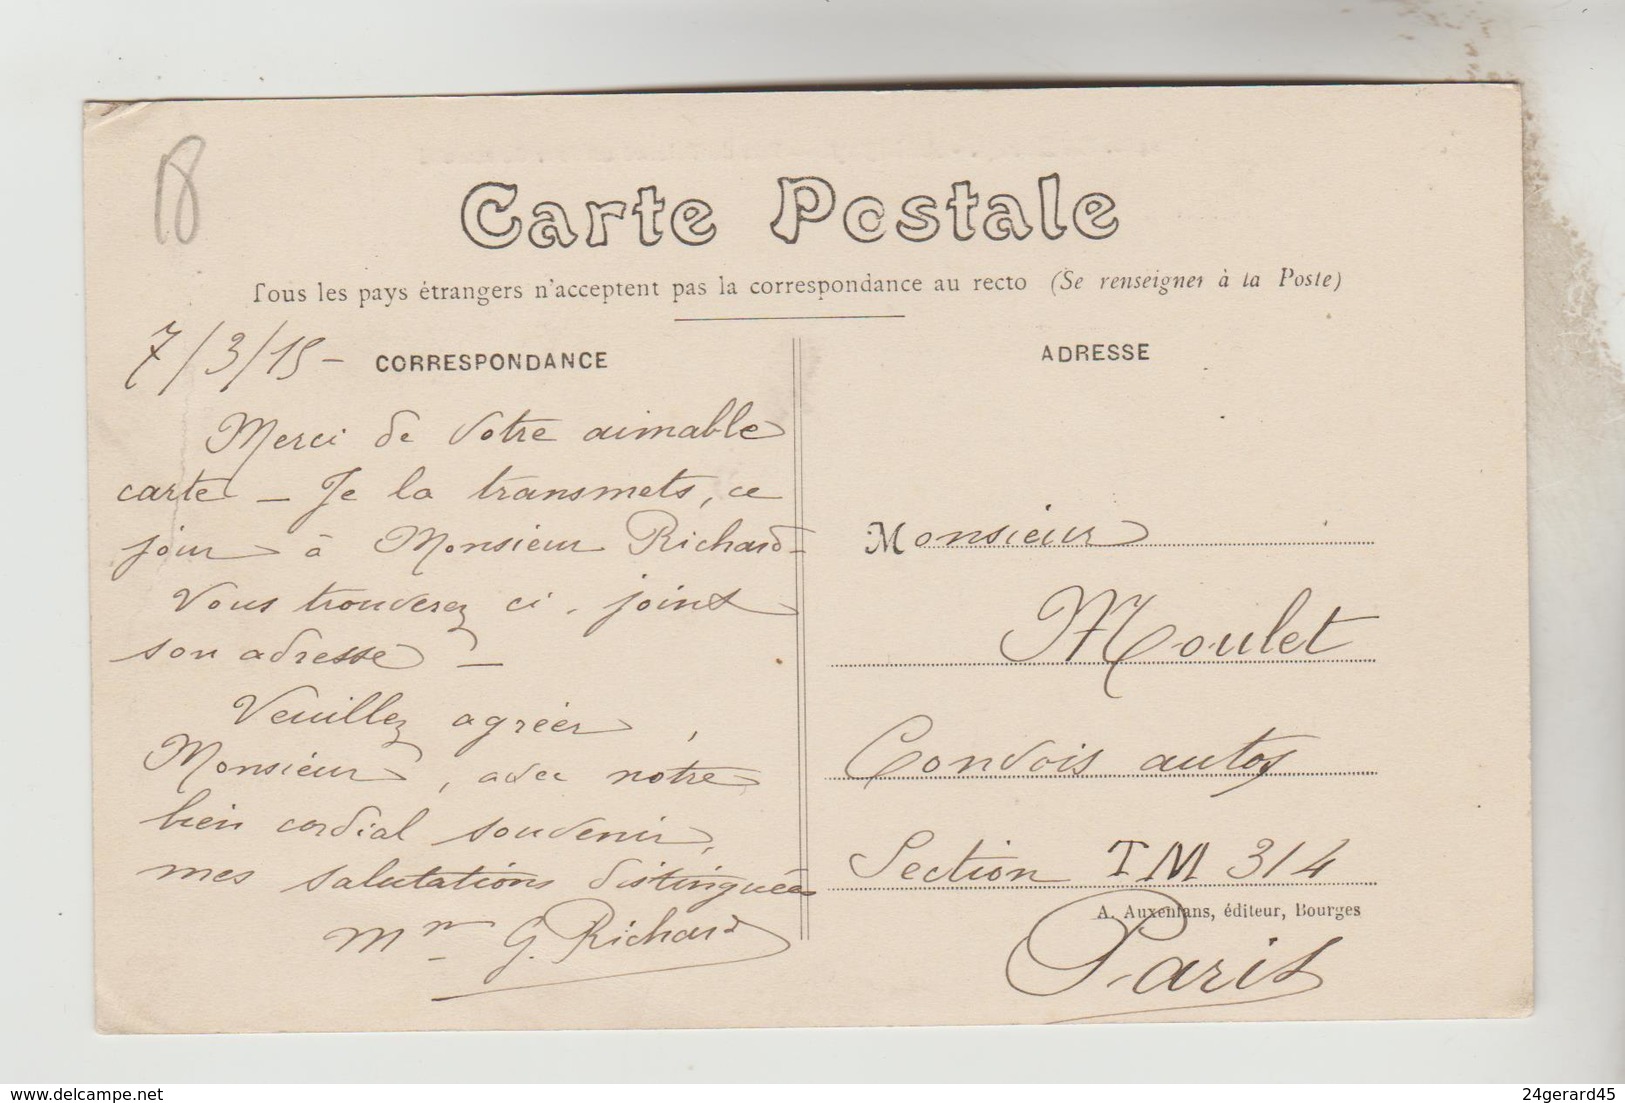 Carte Postale
Tous les pays étrangers n'acceptent pas la correspondance au recto (Se renseigner à la Poste)
7/3/15 -
CORRESPONDANCE
Merci de Votre aimable
carte - Je la transmets, ce
jour à Monsieur Richard -
Vous trouverez ci. joint
son adresse -
Veuillez agréer,
Monsieur, avec notre
bien cordial souvenir,
mes salutations distinguées
G. Richard
ADRESSE
Monsieur
Moulet
Convois autos
Section TM 314
A. Auxenfans, éditeur, Bourges
Paris
24gerard45